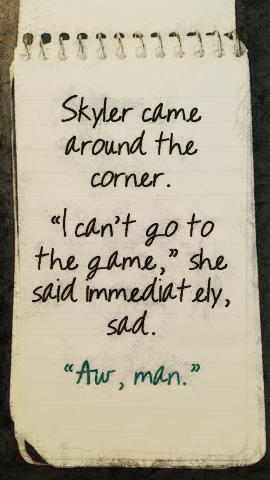 Skyler came
around the
corner.
“I can’t go to
the game,” she
said immediately,
sad.
“Aw, man.”